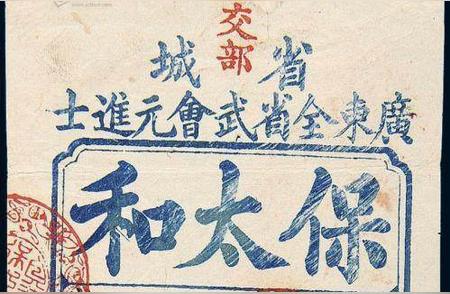 交部
省城
廣東全省武會元進士
保太和